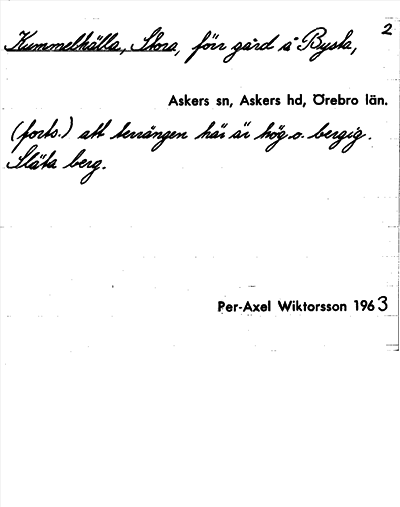 2
Kummelhälla, Stora, förr gård å Bysta,
Askers sn, Askers hd, Örebro län.
(forts.) att terrängen här är hög o. bergig.
Släta berg.
Per-Axel Wiktorsson 1963